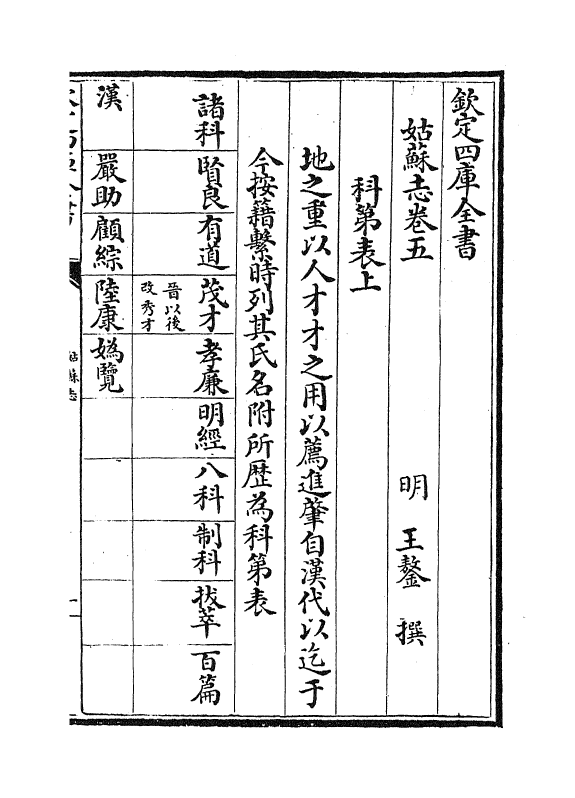 欽定四庫全書
姑蘇志卷五
明 王鏊 撰
科第表上
地之重以人才才之用以薦進肇自漢代以迄于
今按籍繫時列其氏名附所歴為科第表
諸科 賢良 有道 茂才 晉以後改秀才 孝廉 明經 八科 制科 拔萃 百篇
漢 嚴助 顧綜 陸康 媯覽
姑蘇志
一